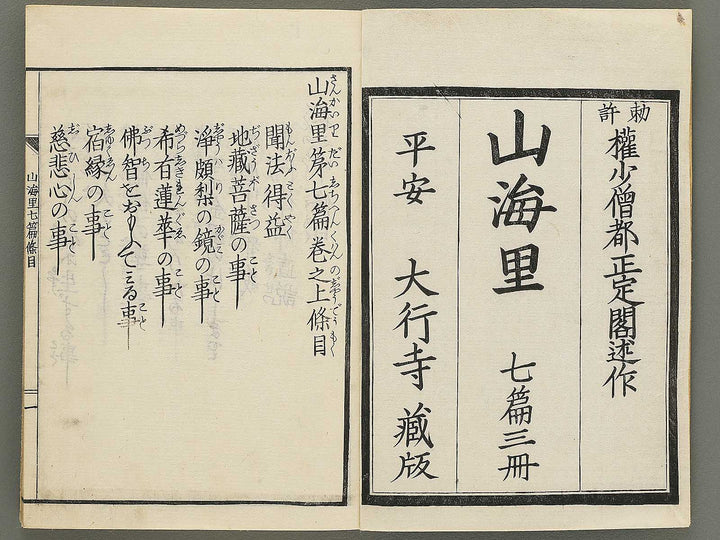 勅許
權少僧都正定閣述作
山海里 七篇三冊
平安 大行寺藏版
山海里第七篇巻之上條目
聞法得益
地藏菩薩の事
淨頗梨の鏡の事
希有蓮華の事
佛智をおもふてミる事
宿縁の事
慈悲心の事
山海里七篇條目
一